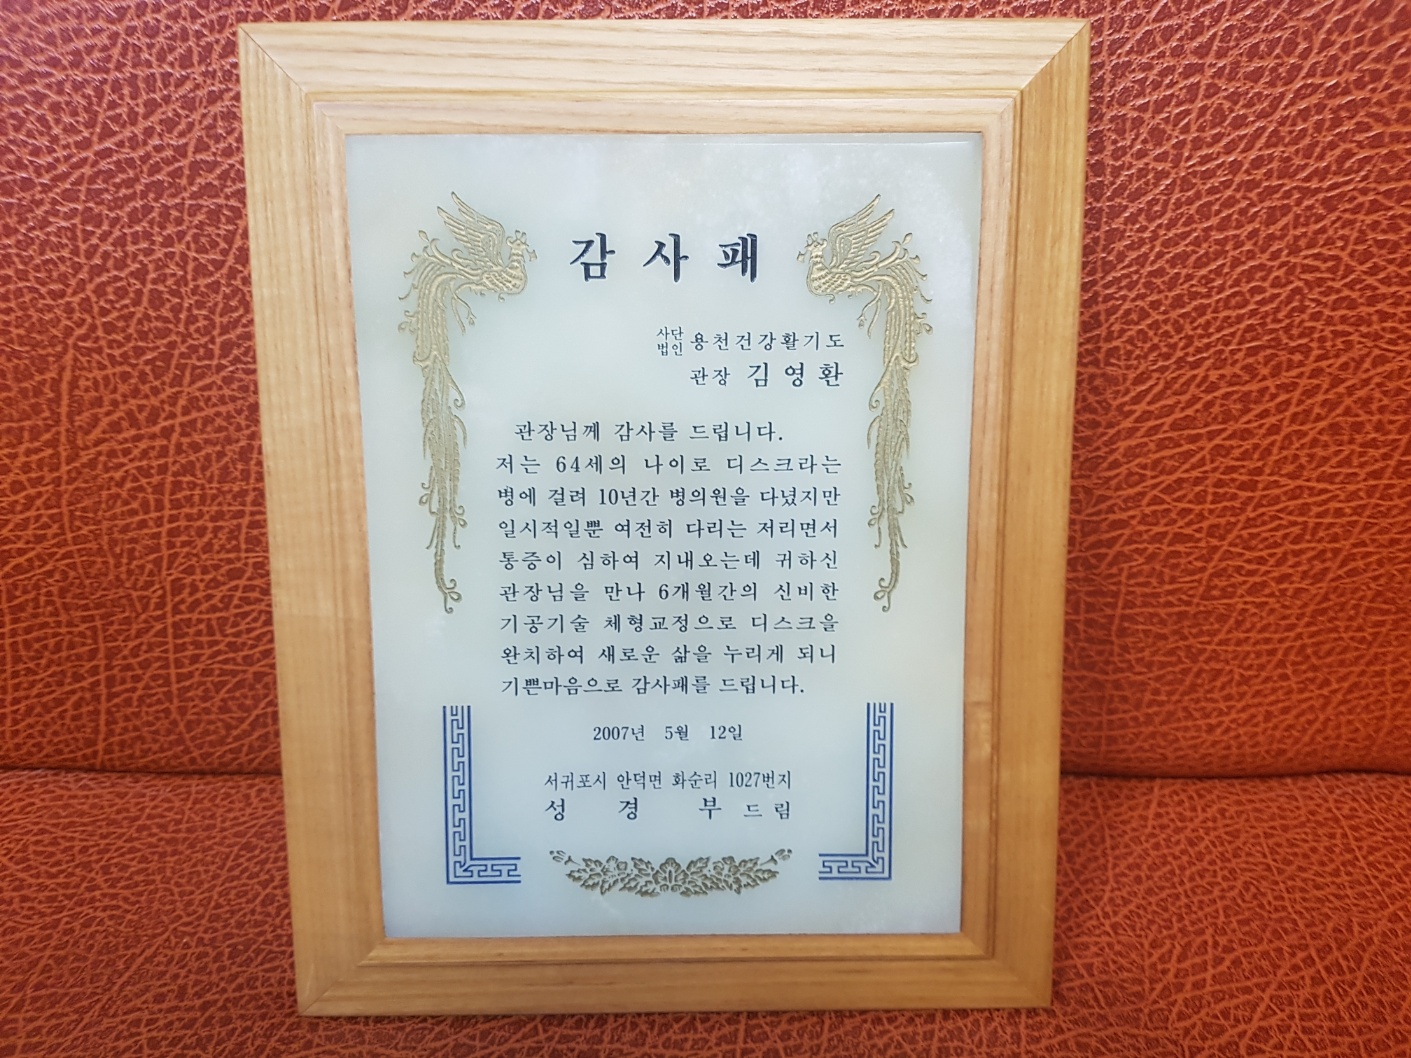 감 사 패
사단법인 용천건강활기도
관장 김 영 환
관장님께 감사를 드립니다.
저는 64세의 나이로 디스크라는
병에 걸려 10년간 병의원을 다녔지만
일시적일뿐 여전히 다리는 저리면서
통증이 심하여 지내오는데 귀하신
관장님을 만나 6개월간의 신비한
기공기술 체형교정으로 디스크을
완치하여 새로운 삶을 누리게 되니
기쁜마음으로 감사패를 드립니다.
2007년 5월 12일
서귀포시 안덕면 화순리 1027번지
성 경 부 드림